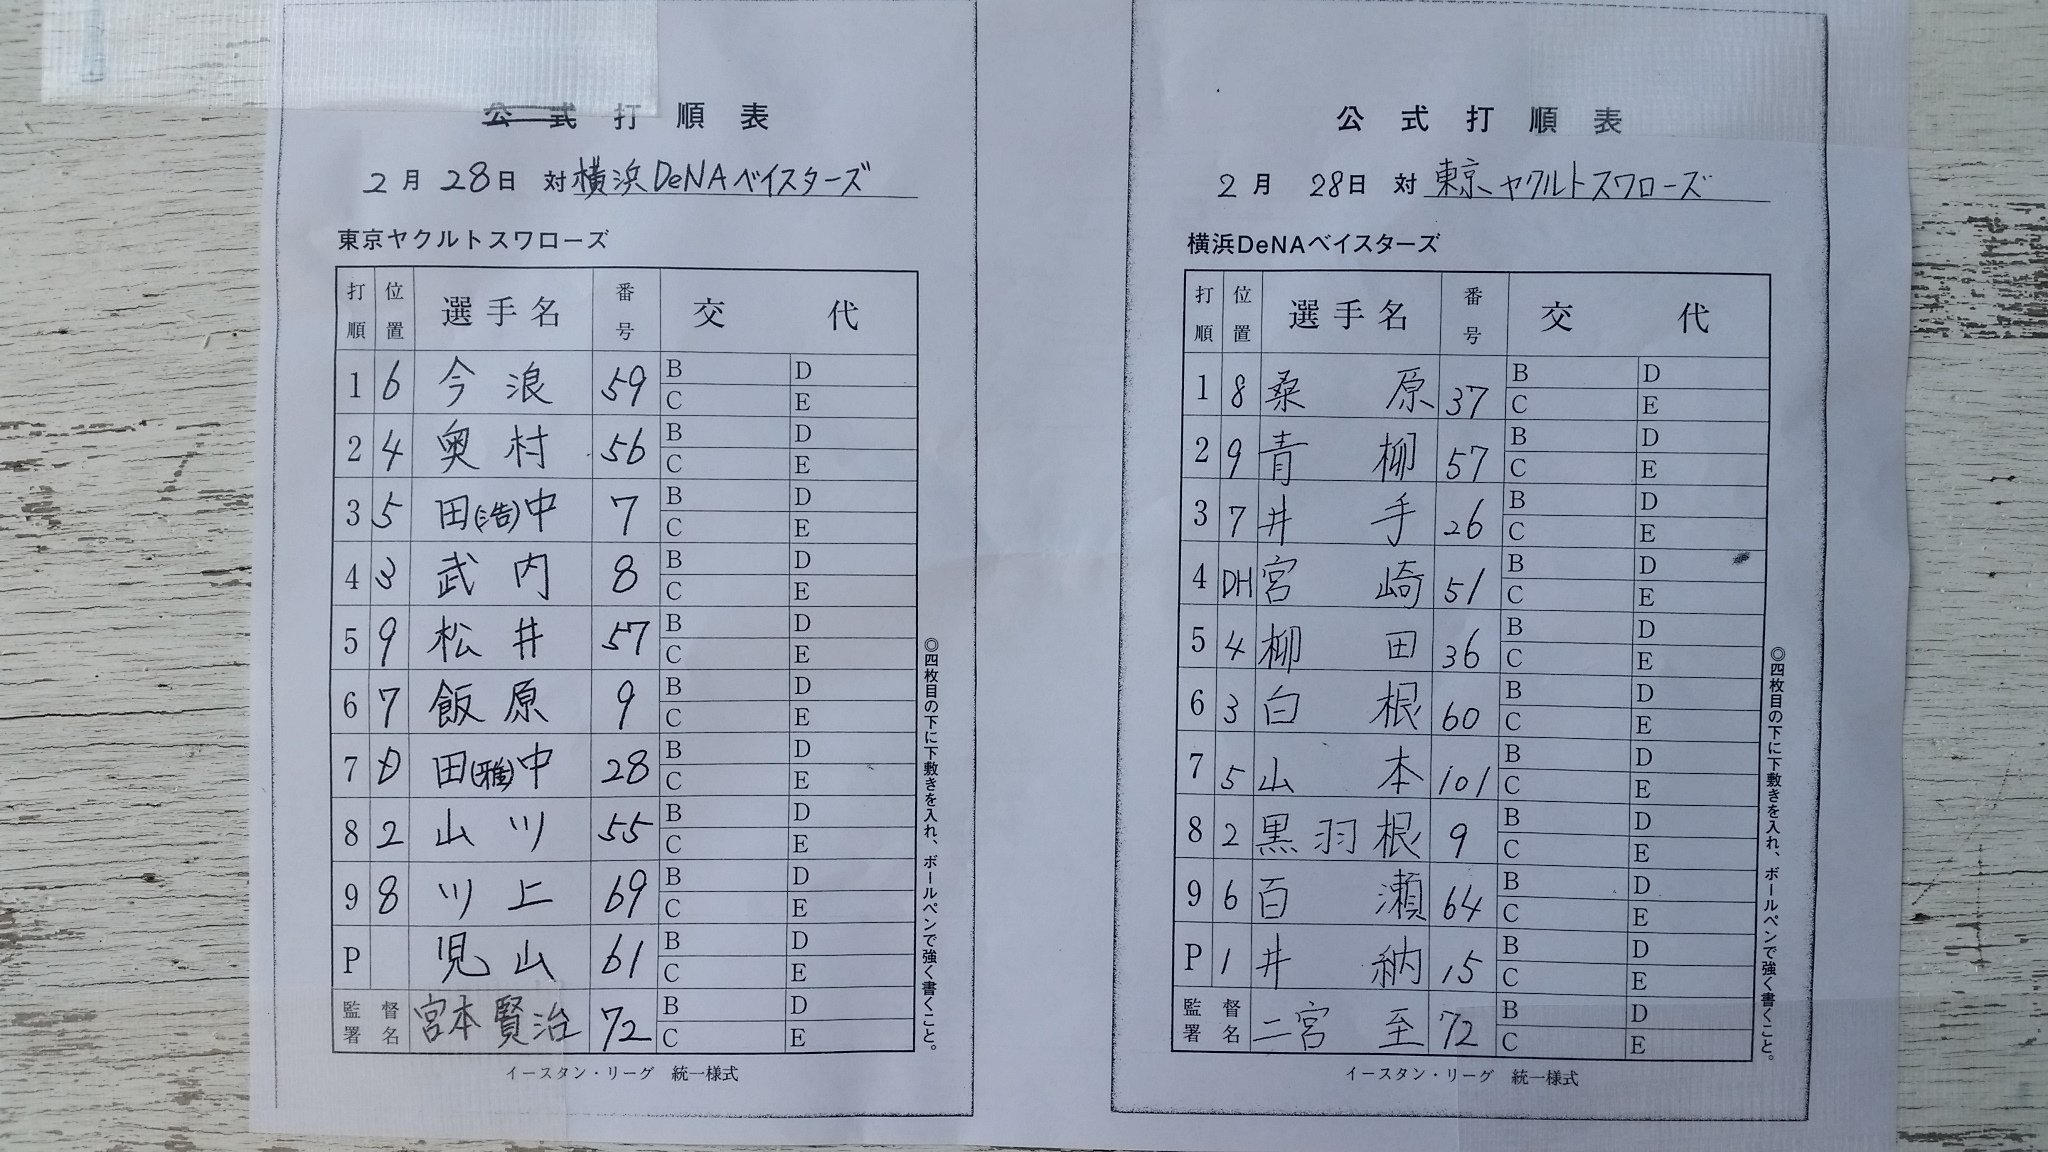 公式打順表
2月28日 対 横浜DeNAベイスターズ
東京ヤクルトスワローズ
打順 位置 選手名 番号 交代
1 6 今浪 59 B D C E
2 4 奥村 56 B D C E
3 5 田(浩)中 7 B D C E
4 3 武内 8 B D C E
5 9 松井 57 B D C E
6 7 飯原 9 B D C E
7 D 田(雅)中 28 B D C E
8 2 山川 55 B D C E
9 8 川上 69 B D C E
P 児山 61 B D C E
監督署名 宮本賢治 72 B D C E
◎四枚目の下に下敷きを入れ、ボールペンで強く書くこと。
イースタン・リーグ 統一様式
公式打順表
2月28日 対 東京ヤクルトスワローズ
横浜DeNAベイスターズ
打順 位置 選手名 番号 交代
1 8 桑原 37 B D C E
2 9 青柳 57 B D C E
3 7 井手 26 B D C E
4 DH 宮崎 51 B D C E
5 4 柳田 36 B D C E
6 3 白根 60 B D C E
7 5 山本 101 B D C E
8 2 黒羽根 9 B D C E
9 6 百瀬 64 B D C E
P 1 井納 15 B D C E
監督署名 二宮至 72 B D C E
◎四枚目の下に下敷きを入れ、ボールペンで強く書くこと。
イースタン・リーグ 統一様式